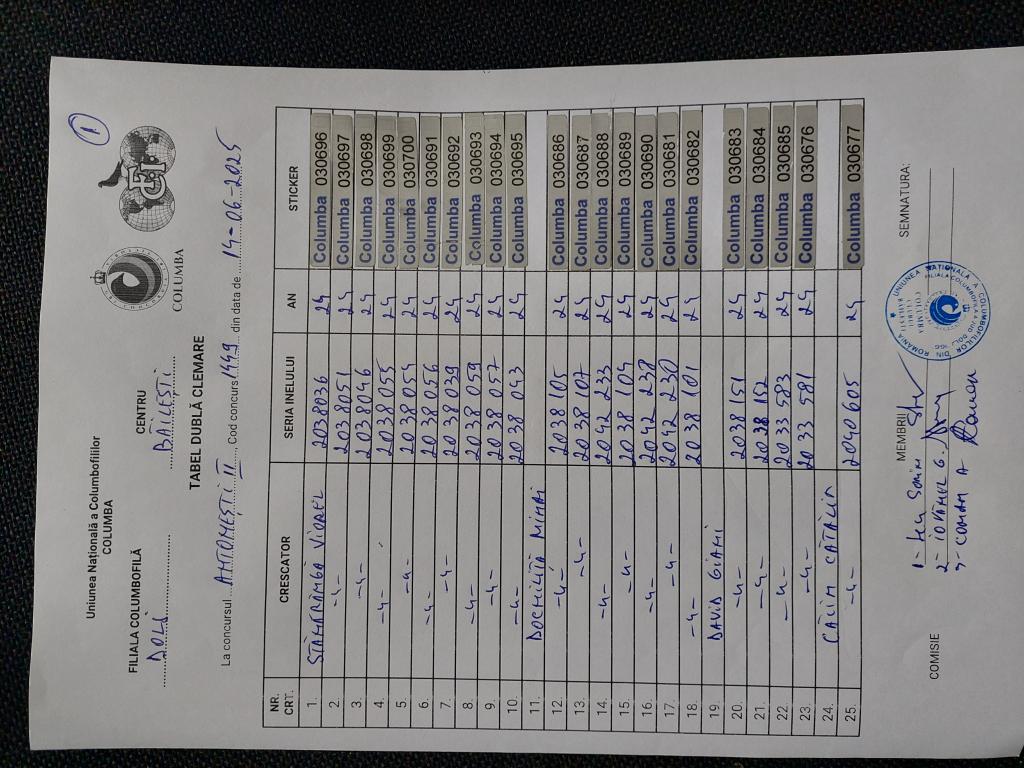 Uniunea Națională a Columbofililor
COLUMBA
COLUMBA
1
FILIALA COLUMBOFILĂ
DOLJ
CENTRU
BĂILEȘTI
TABEL DUBLĂ CLEMARE
La concursul ANTONEȘTI II, Cod concurs 1449 din data de 14-06-2025
NR. CRT. CRESCATOR SERIA INELULUI AN STICKER
1. VIOREL 2038036 24 Columba 030696
2. -"- 2038051 24 Columba 030697
3. -"- 2038046 24 Columba 030698
4. -"- 2038055 24 Columba 030699
5. -"- 2038054 24 Columba 030700
6. -"- 2038056 24 Columba 030691
7. -"- 2038039 24 Columba 030692
8. -"- 2038059 24 Columba 030693
9. -"- 2038057 24 Columba 030694
10. -"- 2038043 24 Columba 030695
11. DOCHILIȚĂ MIHAI
12. -"- 2038105 24 Columba 030686
13. -"- 2038107 24 Columba 030687
14. -"- 2042233 24 Columba 030688
15. -"- 2038104 24 Columba 030689
16. -"- 2042238 24 Columba 030690
17. -"- 2042230 24 Columba 030681
18. -"- 2038101 24 Columba 030682
19. DAVID GIANI
20. -"- 2038151 24 Columba 030683
21. -"- 2038152 24 Columba 030684
22. -"- 2033583 24 Columba 030685
23. -"- 2033581 24 Columba 030676
24. CĂLIM CĂTĂLIN
25. -"- 2040605 24 Columba 030677
COMISIE MEMBRII SEMNATURA:
1-
2- G.
3- COMAN A